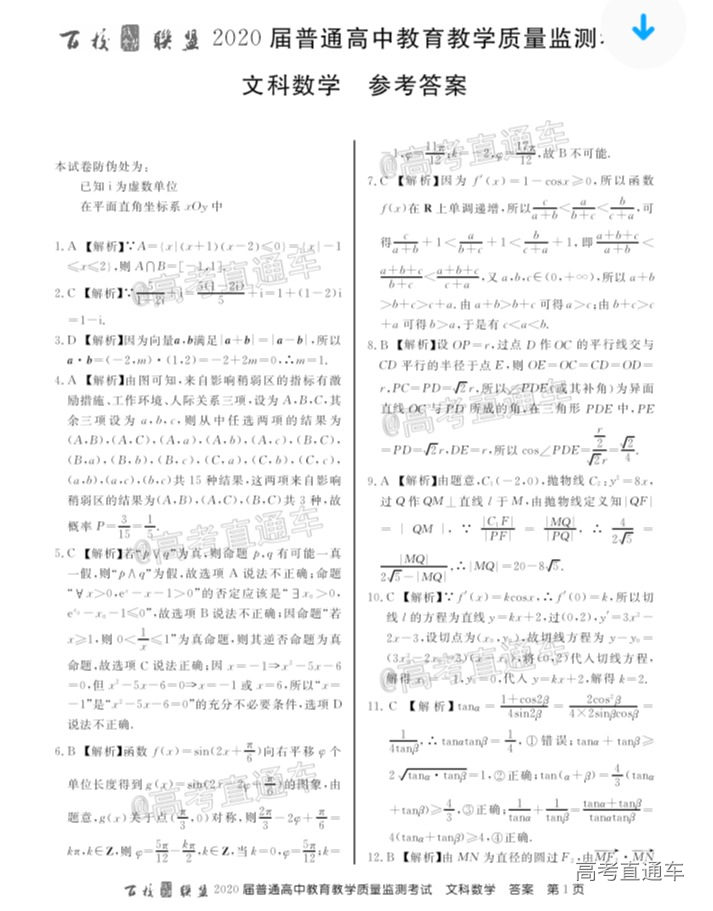 百校联盟 2020届普通高中教育教学质量监测考
文科数学 参考答案
本试卷防伪处为：
已知 i 为虚数单位
在平面直角坐标系 xOy 中
1. A 【解析】∵A={x|(x+1)(x-2)≤0}={x|-1
≤x≤2},则 A∩B=[-1,1].
2. C 【解析】
+i=1+(1-2)i
=1-i.
3. D 【解析】因为向量a,b满足|a+b|=|a-b|,所以
a·b=(-2,m)·(1,2)=-2+2m=0,∴m=1.
4. A 【解析】由图可知,来自影响稍弱区的指标有激
励措施、工作环境、人际关系三项,设为 A,B,C,其
余三项设为 a,b,c,则从中任选两项的结果为
(A,B),(A,C),(A,a),(A,b),(A,c),(B,C),
(B,a),(B,b),(B,c),(C,a),(C,b),(C,c),
(a,b),(a,c),(b,c)共 15 种结果,这两项来自影响
稍弱区的结果为(A,B),(A,C),(B,C)共 3 种,故
概率 P=3/15=1/5.
5. C 【解析】若“p∨q”为真,则命题 p,q 有可能一真
一假,则“p∧q”为假,故选项 A 说法不正确;命题
“∀x>0,eˣ-x-1>0”的否定应该是“∃x₀>0,
e^x₀-x₀-1≤0”,故选项 B 说法不正确;因命题“若
x≥1,则 0<1/x≤1”为真命题,则其逆否命题为真
命题,故选项 C 说法正确;因 x=-1⇒x²-5x-6
=0,但 x²-5x-6=0⇏x=-1 或 x=6,所以“x=
-1”是“x²-5x-6=0”的充分不必要条件,选项 D
说法不正确.
6. B 【解析】函数 f(x)=sin(2x+π/6)向右平移 φ 个
单位长度得到 g(x)=sin(2x-2φ+π/6)的图象,由
题意,g(x)关于点(π/3,0)对称,则2π/3-2φ+π/6=
kπ,k∈Z,则 φ=5π/12-kπ/2,k∈Z,当 k=0,φ=5π/12;k=
-1,φ=11π/12;k=-2,φ=17π/12,故 B 不可能.
7. C 【解析】因为 f′(x)=1-cosx≥0,所以函数
f(x)在 R 上单调递增,所以c/(a+b)<a/(b+c)<b/(c+a),可
得c/(a+b)+1<a/(b+c)+1<b/(c+a)+1,即(a+b+c)/(a+b)<
(a+b+c)/(b+c)<(a+b+c)/(c+a),又 a,b,c∈(0,+∞),所以 a+b
>b+c>c+a.由 a+b>b+c 可得 a>c;由 b+c>c
+a 可得 b>a,于是有 c<a<b.
8. B 【解析】设 OP=r,过点 D 作 OC 的平行线交与
CD 平行的半径于点 E,则 OE=OC=CD=OD=
r,PC=PD=√2r,所以∠PDE(或其补角)为异面
直线 OC 与 PD 所成的角,在三角形 PDE 中,PE
=PD=√2r,DE=r,所以 cos∠PDE=(r/2)/(√2r)=√2/4.
9. A 【解析】由题意,C₁(-2,0),抛物线 C₂:y²=8x,
过 Q 作 QM⊥直线 l 于 M,由抛物线定义知|QF|
=|QM|,∵|C₁F|/|PF|=|MQ|/|PQ|,∴4/(2√5)=
|MQ|/(2√5-|MQ|),∴|MQ|=20-8√5.
10. C 【解析】∵f′(x)=kcosx,∴f′(0)=k,所以切
线 l 的方程为直线 y=kx+2,过(0,2),y′=3x²-
2x-3,设切点为(x₀,y₀),故切线方程为 y-y₀=
(3x₀²-2x₀-3)(x-x₀),将(0,2)代入切线方程,
解得 x₀=-1,y₀=0,代入 y=kx+2,解得 k=2.
11. C 【解析】tanα=(1+cos2β)/(4sin2β)=2cos²β/(4×2sinβcosβ)=
1/(4tanβ),∴tanαtanβ=1/4,①错误;tanα+tanβ≥
2√(tanα·tanβ)=1,②正确;tan(α+β)=4/3(tanα
+tanβ)≥4/3,③正确;1/tanα+1/tanβ=(tanα+tanβ)/(tanαtanβ)=
4(tanα+tanβ)≥4,④正确.
12. B 【解析】由 MN 为直径的圆过 F₂,由MF₂·MN
百校联盟 2020届普通高中教育教学质量监测考试 文科数学 答案 第1页
@高考直通车
@高考直通车
@高考直通车
@高考直通车
@高考直通车
@高考直通车
高考直通车